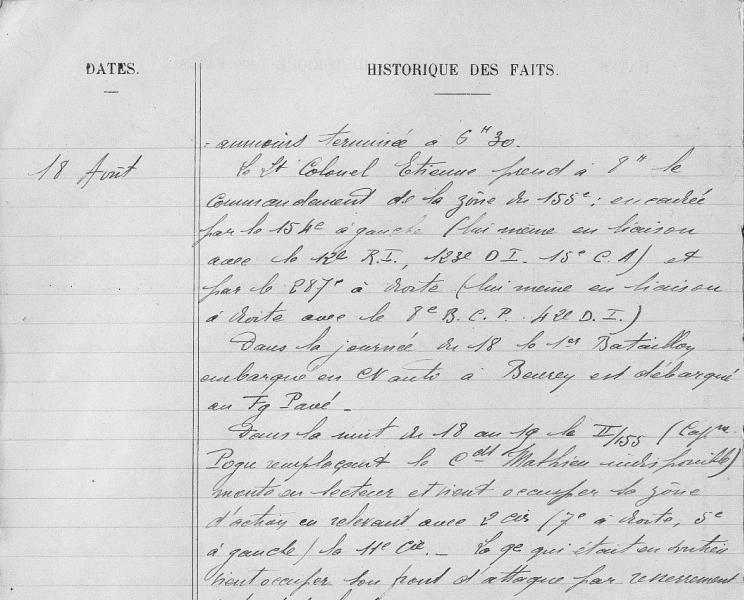 DATES.
HISTORIQUE DES FAITS.
terminée à 6H30.
18 Août
Le Lt Colonel Etienne prend à 8H le
commandement de la zône du 155e ; encadrée
par le 154e à gauche (lui même en liaison
avec le 12e R.I., 123e D.I. 15e C.A) et
par le 287e à droite (lui même en liaison
à droite avec le 8e B.C.P. 42e D.I.)
Dans la journée du 18 le 1er Bataillon
embarqué en CN auto à Beurey est débarqué
au Fg Pavé _
Dans la nuit du 18 au 19 le II/155 (Capne
Pogu remplaçant le Cdt Mathieu indisponible)
monte en secteur et vient occuper la zône
d'action en relevant avec 2 Cies (7e à droite, 5e
à gauche) la 11e Cie. _ La 9e qui était en soutien
vient occuper son front d'attaque par resserrement